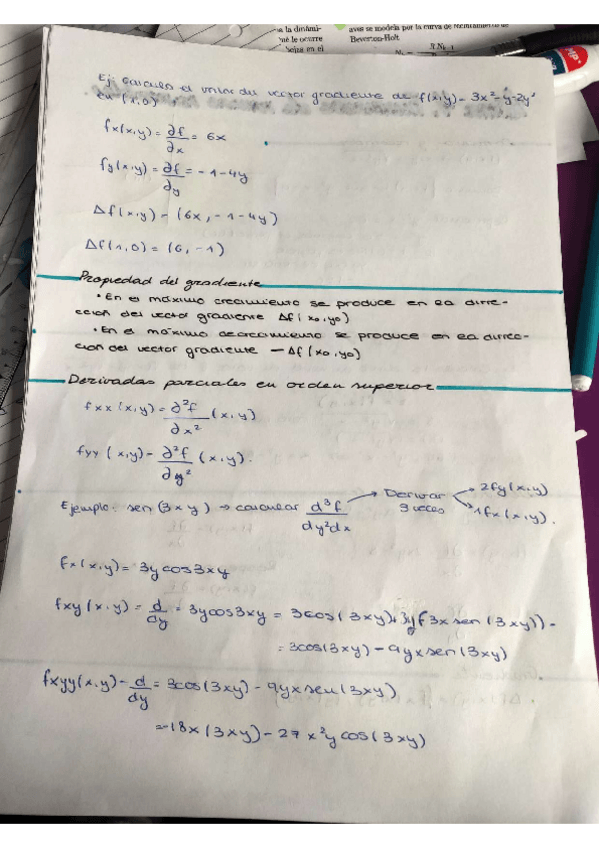 sa la dinámi-
né le ocurre
aves se modela por la curva de reclutamiento de
Beverton-Holt
Ej calcula el valor del vector gradiente de f(x,y) = 3x²-y-2y²
en (1,0)
fx(x,y) = ∂f/∂x = 6x
fy(x,y) = ∂f/∂y = -1-4y
Δf(x,y) = (6x, -1-4y)
Δf(1,0) = (6,-1)
Propiedad del gradiente
• En el máximo crecimiento se produce en la direc-
ción del vector gradiente Δf(x0,y0)
• En el máximo decrecimiento se produce en la direc-
ción del vector gradiente -Δf(x0,y0)
Derivadas parciales en orden superior
fxx(x,y) = ∂²f/∂x² (x,y)
fyy(x,y) = ∂²f/∂y² (x,y).
Ejemplo: sen(3xy) → calcular d³f/dy²dx → Derivar 3 veces → 2fy(x,y)
→ 1fx(x,y).
fx(x,y) = 3ycos3xy
fxy(x,y) = d/dy = 3ycos3xy = 3cos(3xy)+3y(-3xsen(3xy)) =
= 3cos(3xy) - 9yxsen(3xy)
fxyy(x,y) = d/dy = 3cos(3xy) - 9yxsen(3xy)
= -18x(3xy) - 27x²ycos(3xy)